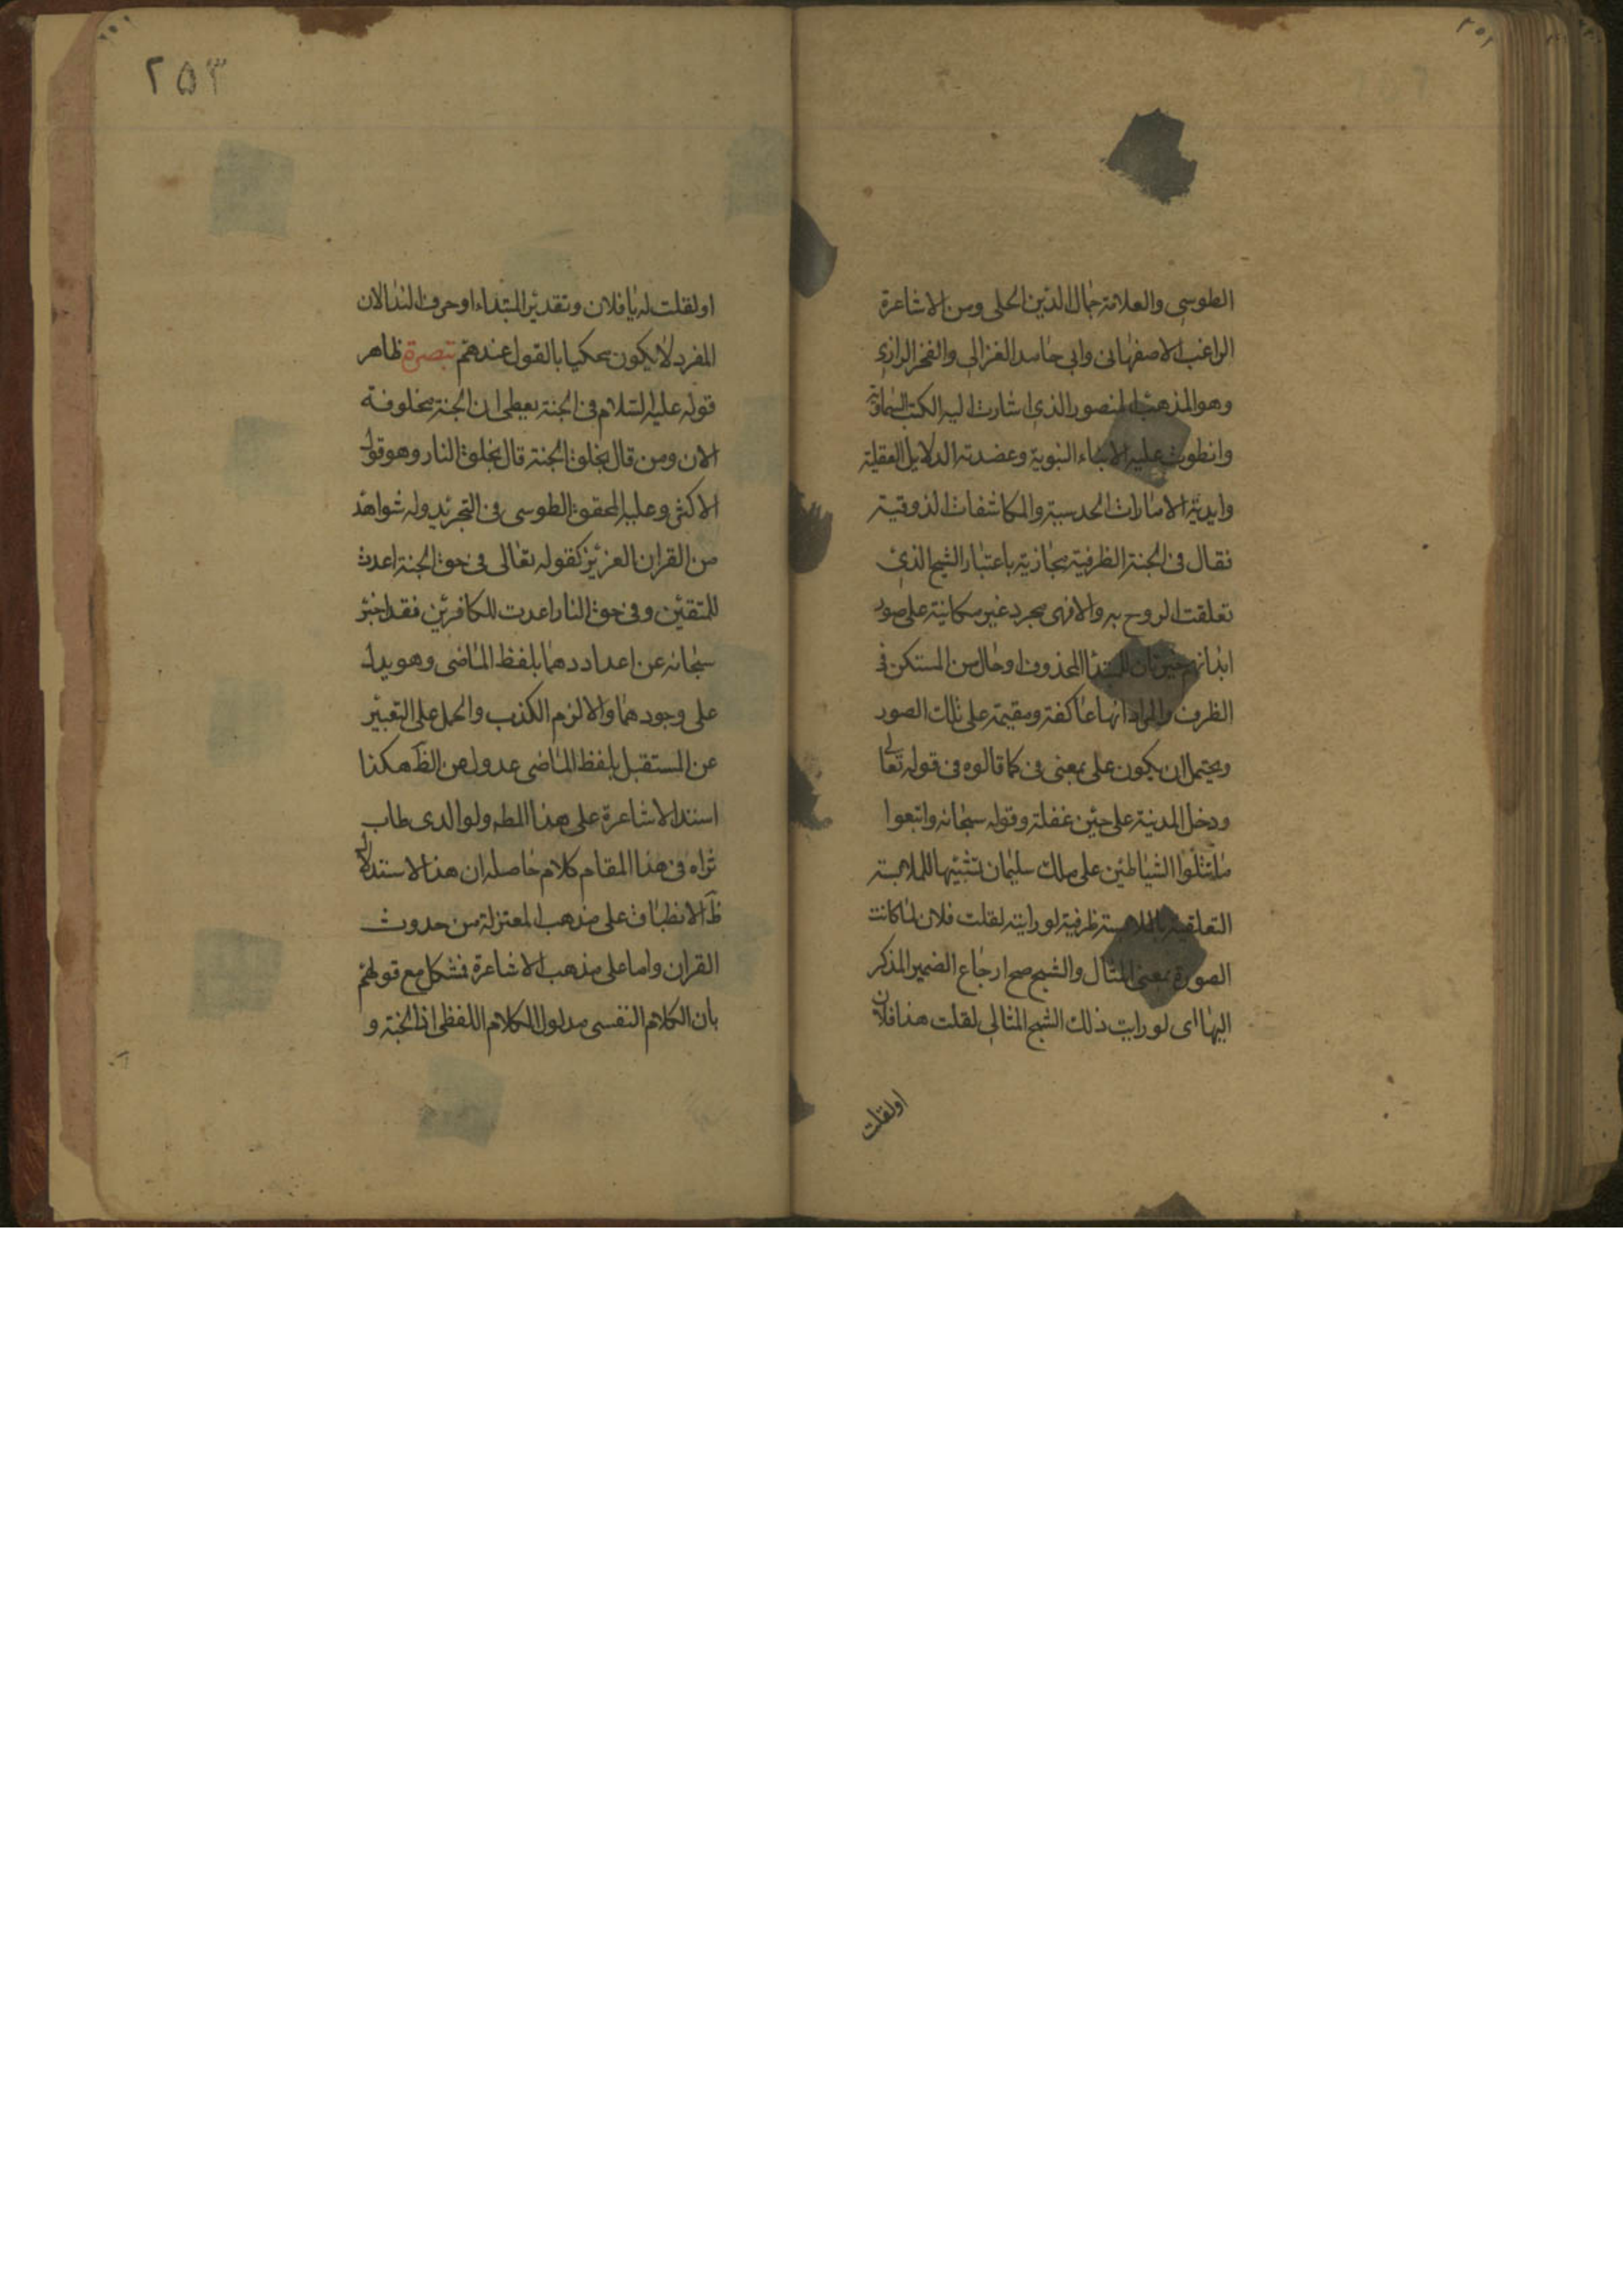 الطوسي والعلامة جمال الدين الحلي ومن الاشاعرة
الراغب الاصفهانى وابى حامد الغزالى والفخر الرازى
وهو المذهب المنصور الذى اشارت اليه الكتب السماوية
وانطوت عليه الانباء النبوية وعضدته الدلايل العقلية
وايدته الامارات الحدسية والمكاشفات الذوقية
فقال فى الجنة الظرفية مجازية باعتبار الشبح الذى
تعلقت الروح به والا فهى مجرد غير مكانية على صور
ابدانهم خبر ثان للمبتدا المحذوف او حال من المستكن فى
الظرف والمراد انها عاكفة ومقيمة على تلك الصور
ويحتمل ان يكون على بمعنى فى كما قالوه فى قوله تعالى
ودخل المدينة على حين غفلة وقوله سبحانه واتبعوا
ما تتلوا الشياطين على ملك سليمان تشبيها للملابسة
التعلقية بالملابسة ظرفية لو رايته لقلت فلان لما كانت
الصورة بمعنى المثال والشبح صح ارجاع الضمير المذكر
اليها اى لو رايت ذلك الشبح المثالى لقلت هذا فلان
اولقلت
٢٥٣
اولقلت له يا فلان وتقدير المبتداء او حرف الندا لان
المفرد لا يكون محكيا بالقول عندهم تبصرة ظاهر
قوله عليه السلام فى الجنة يعطى ان الجنة مخلوقة
الان ومن قال بخلق الجنة قال بخلق النار وهو قول
الاكثر وعليه المحقق الطوسى فى التجريد وله شواهد
من القران العزيز كقوله تعالى فى حق الجنة اعدت
للمتقين وفى حق النار اعدت للكافرين فقد اخبر
سبحانه عن اعدادهما بلفظ الماضى وهو يدل
على وجودهما والا لزم الكذب والحمل على التعبير
عن المستقبل بلفظ الماضى عدول عن الظ هكذا
استدل الاشاعرة على هذا المط ولوالدى طاب
ثراه فى هذا المقام كلام حاصله ان هذا الاستدلال
ظ الانطباق على مذهب المعتزلة من حدوث
القران واما على مذهب الاشاعرة فمشكل مع قولهم
بان الكلام النفسى مدلول الكلام اللفظى اذ الجنة و